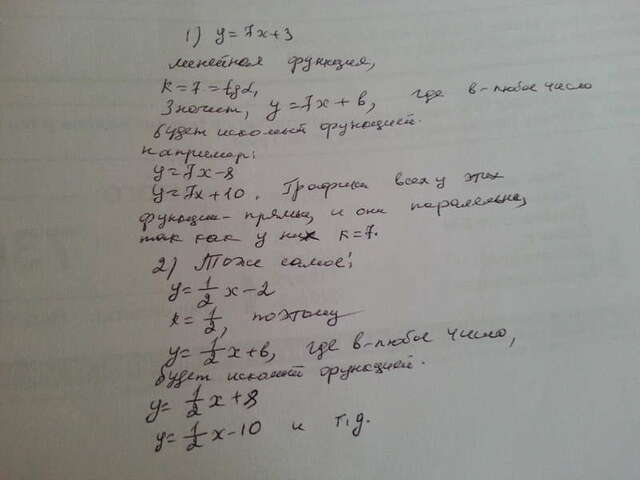 1) y=7x+3
линейная функция,
k=7=tgα,
Значит, y=7x+b, где b-любое число
будет искомый функцией.
например:
y=7x-8
y=7x+10. Графики всех у этих
функции- прямы, и они паралельны,
так как у них k=7.
2) Тоже самое:
y=1/2 x-2
k=1/2, поэтому
y=1/2 x+b, где b-любое число,
будет искомый функцией.
y=1/2 x+8
y=1/2 x-10 и т.д.